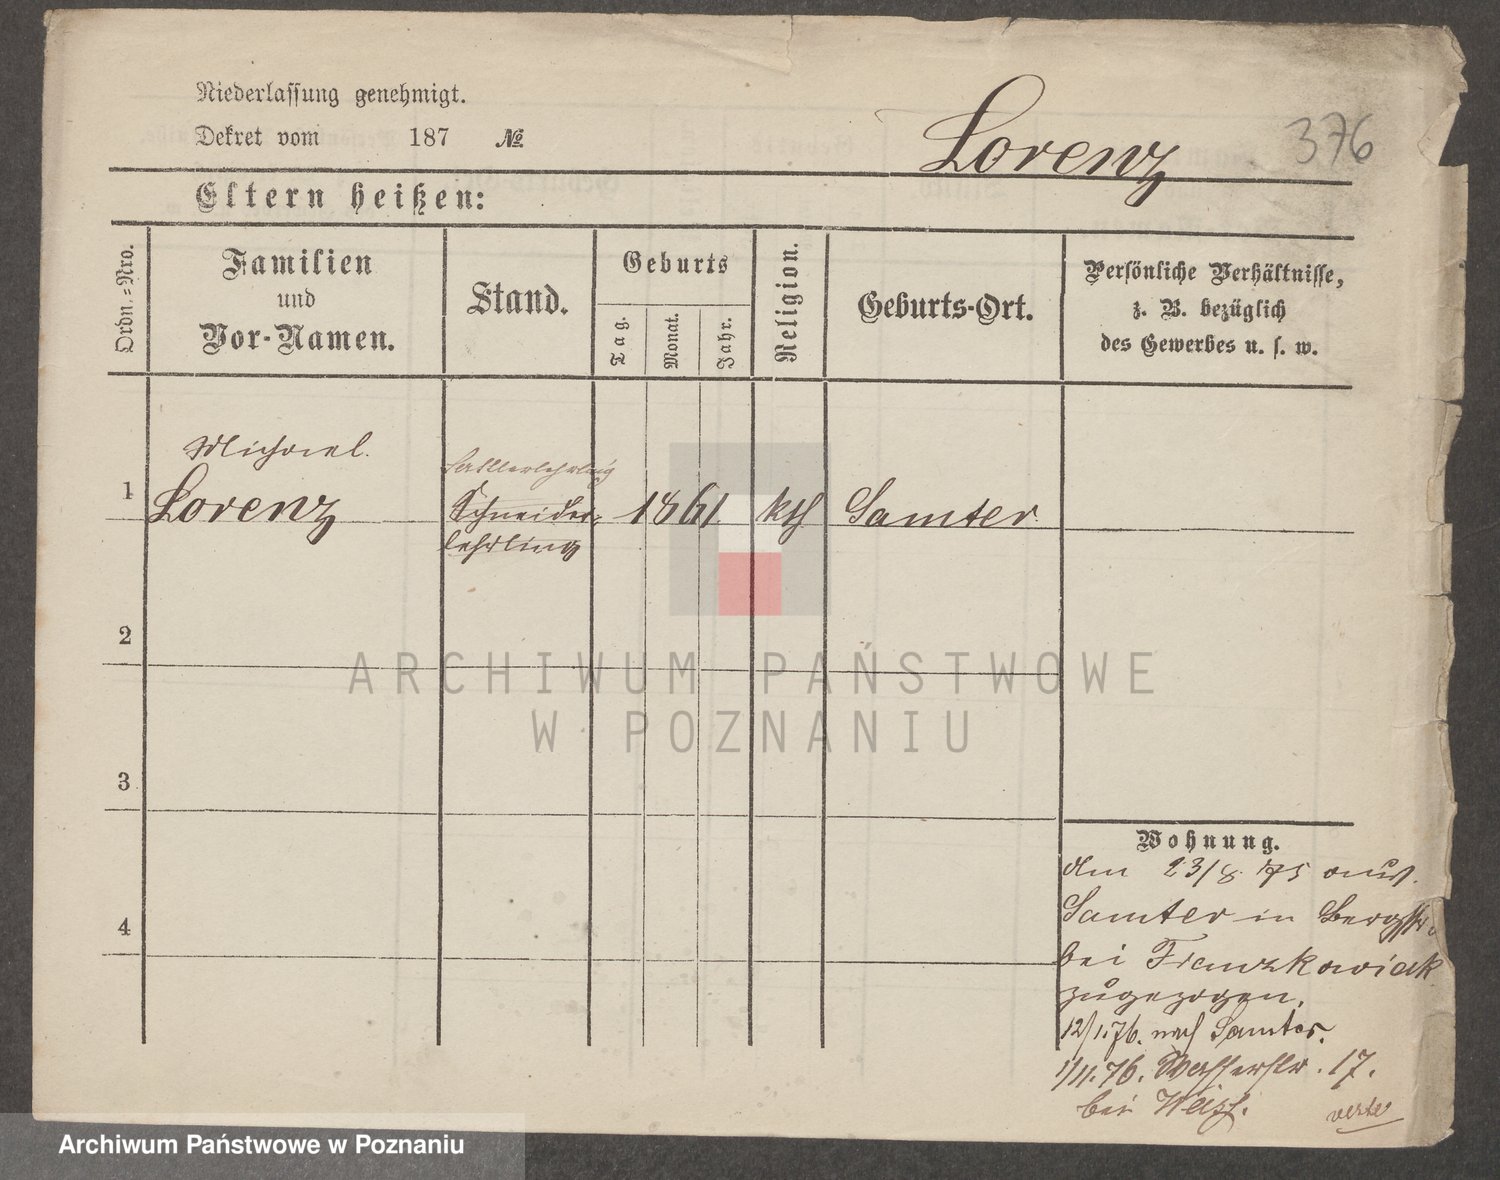 Niederlassung genehmigt.
Dekret vom 187 №
Lorenz
376
Eltern heißen:
Ordn.=Nro.
Familien
und
Vor-Namen.
Stand.
Geburts
Tag.
Monat.
Jahr.
Religion.
Geburts-Ort.
Persönliche Verhältnisse,
z. B. bezüglich
des Gewerbes u. s. w.
Michael.
Sattlerlehrling
1 Lorenz Schneider= 1861. kth Samter
lehrling
2
3
4
Wohnung.
den 23/8 75 aus
Samter in Bergstr.
bei Franzkowiak
zugezogen.
12/1.76. nach Samter.
1/11.76. Wasserstr. 17.
bei
verte
ARCHIWUM PAŃSTWOWE
W POZNANIU
Archiwum Państwowe w Poznaniu